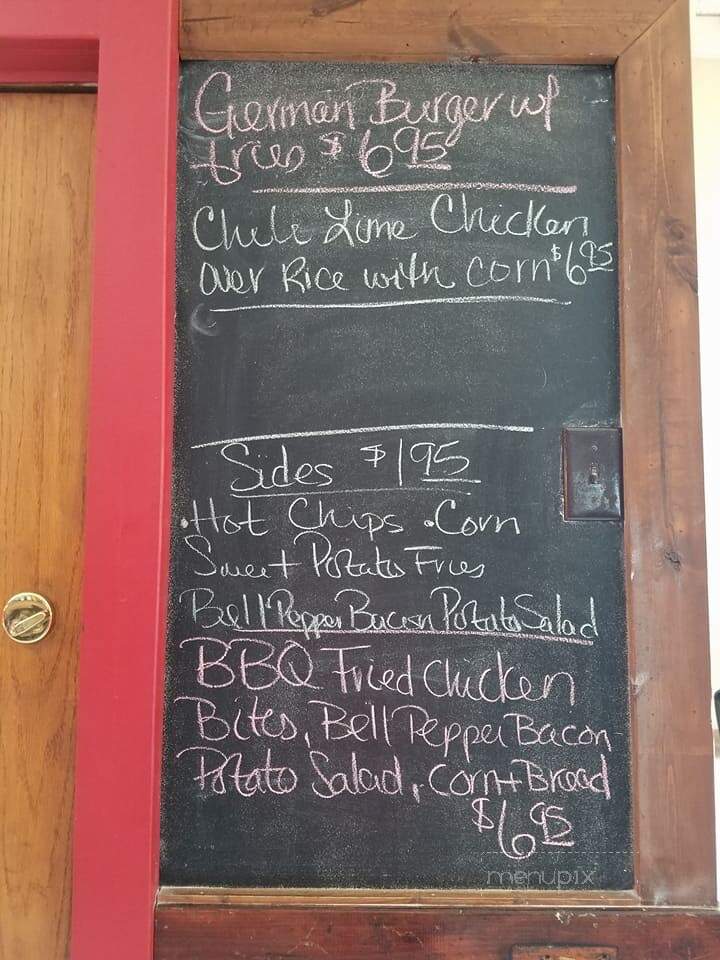 German Burger w/
fries $6.95
Chili Lime Chicken
over Rice with corn $6.95
Sides $1.95
.Hot Chips .Corn
Sweet Potato Fries
Bell Pepper Bacon Potato Salad
BBQ Fried Chicken
Bites, Bell Pepper Bacon
Potato Salad, Corn + Bread
$6.95
menupix